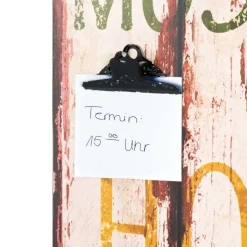 MUS
Termin:
15 00 Uhr
HO